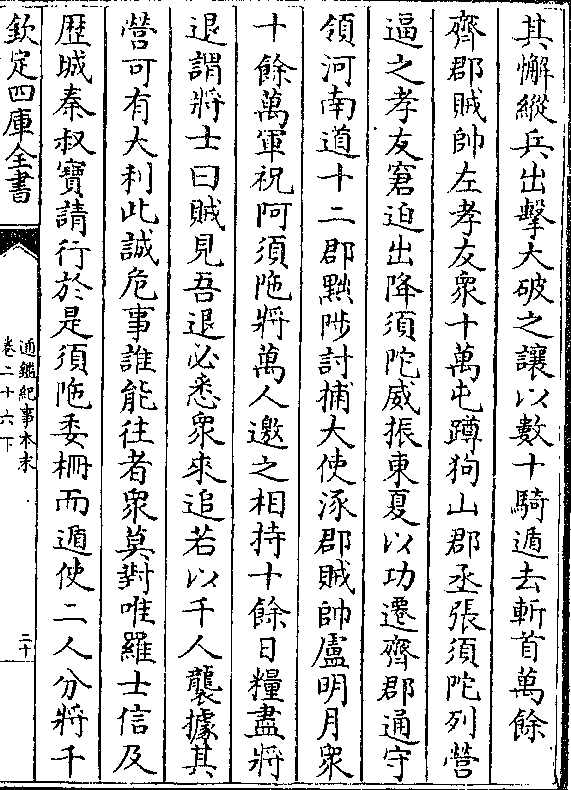 其懈縱兵出擊大破之讓以數十騎遁去斬首萬餘
齊郡賊帥左孝友衆十萬屯蹲狗山郡丞張須陀列營
逼之孝友窘迫出降須陀威振東夏以功遷齊郡通守
領河南道十二郡黜陟討捕大使涿郡賊帥盧明月衆
十餘萬軍祝阿須陁將萬人邀之相持十餘日糧盡將
退謂將士曰賊見吾退必悉衆來追若以千人襲據其
營可有大利此誠危事誰能往者衆莫對唯羅士信及
歴城秦叔寶請行於是須陁委柵而遁使二人分將千
欽定四庫全書
通鑑紀事本末
卷二十六下
二十